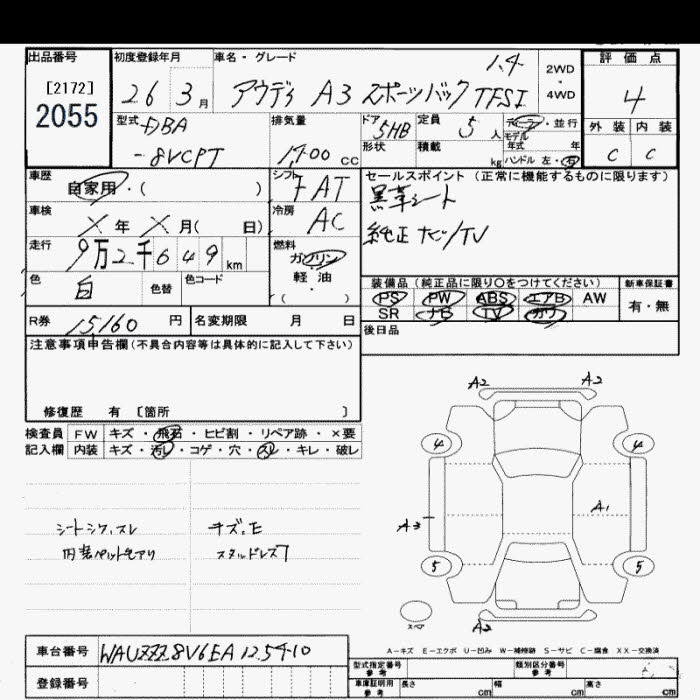 出品番号 初度登録年月 車名・グレード 1.4 2WD・4WD 評価点
[2172]
2055
26 3月 アウディ A3 スポーツバック TFSI 4
型式 DBA 排気量 ドア 5HB 定員 5人 ディーラー・並行 外装 内装
モデル年式 年
-8VCPT 1400 cc 形状 積載 kg ハンドル 左・右 C C
車歴 自家用・( ) シフト FAT セールスポイント (正常に機能するものに限ります)
黒革シート
車検 X年 X月( 日) 冷房 AC
純正ナビ/TV
走行 9万2千649km 燃料 ガソリン・軽油・( )
色 白 色替 色コード
装備品(純正品に限り〇をつけてください) 新車保証書
PS PW ABS エアB AW 有・無
SR ナビ TV カワ
R券 15,160円 名変期限 月 日
後日品
注意事項申告欄(不具合内容等は具体的に記入して下さい)
修復歴 有 [箇所 ]
検査員 FW キズ・飛石・ヒビ割・リペア跡・×要
記入欄 内装 キズ・汚レ・コゲ・穴・スレ・キレ・破レ
シートシワ、スレ キズ、E
内装ペット毛アリ スタッドレス
A2 A2
4 4
A1
A3
5 5
スペア
A2
A-キズ E-エクボ U-凹み W-補修跡 S-サビ C-腐食 XX-交換済
車台番号 WAUZZZ8V6EA125410
型式指定番号 参考 類別区分番号 参考
登録番号
車庫証明用 参考 長さ cm 幅 cm 高さ cm